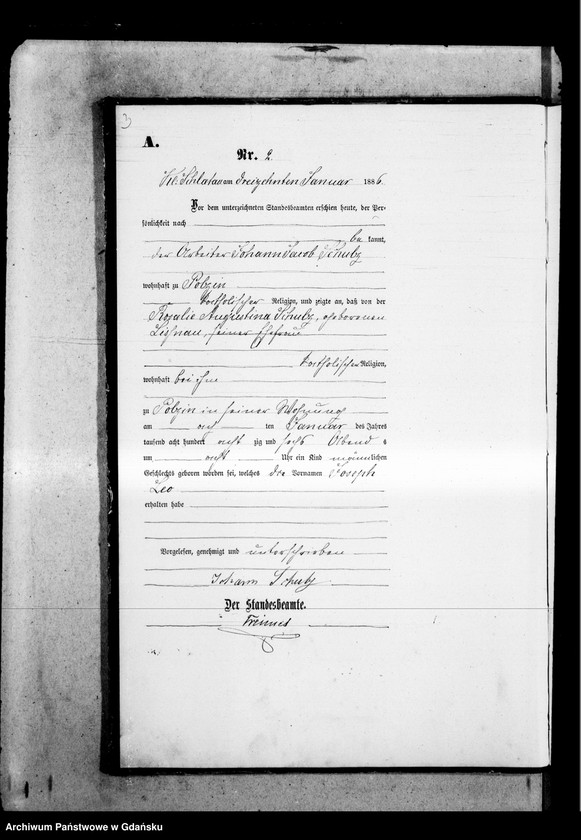 3
A.
Nr. 2
Kl. Schlatau am dreizehnten Januar 1886
Vor dem unterzeichneten Standesbeamten erschien heute, der Per-
sönlichkeit nach
be kannt,
der Arbeiter Johann Jacob Schulz
wohnhaft zu Polzin
katholischer Religion, und zeigte an, daß von der
Rosalie Augustina Schulz, geborenen
seiner Ehefrau
katholischer Religion,
wohnhaft bei ihm
zu Polzin in seiner Wohnung
am acht ten Januar des Jahres
tausend acht hundert acht zig und sechs Abend s
um acht Uhr ein Kind männlichen
Geschlechts geboren worden sei, welches die Vornamen Joseph
Leo
erhalten habe
Vorgelesen, genehmigt und unterschrieben
Johann Schulz
Der Standesbeamte.
Archiwum Państwowe w Gdańsku